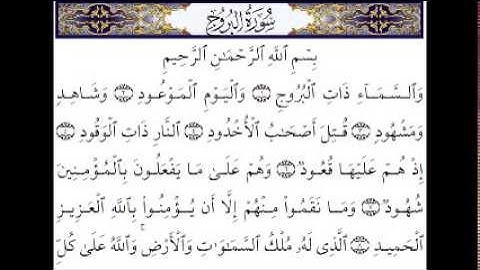 سُورَةُ البُرُوجِ
بِسْمِ ٱللَّهِ ٱلرَّحْمَـٰنِ ٱلرَّحِيمِ
وَٱلسَّمَآءِ ذَاتِ ٱلْبُرُوجِ ۝١ وَٱلْيَوْمِ ٱلْمَوْعُودِ ۝٢ وَشَاهِدٍ
وَمَشْهُودٍ ۝٣ قُتِلَ أَصْحَـٰبُ ٱلْأُخْدُودِ ۝٤ ٱلنَّارِ ذَاتِ ٱلْوَقُودِ ۝٥
إِذْ هُمْ عَلَيْهَا قُعُودٌ ۝٦ وَهُمْ عَلَىٰ مَا يَفْعَلُونَ بِٱلْمُؤْمِنِينَ
شُهُودٌ ۝٧ وَمَا نَقَمُوا۟ مِنْهُمْ إِلَّآ أَن يُؤْمِنُوا۟ بِٱللَّهِ ٱلْعَزِيزِ
ٱلْحَمِيدِ ۝٨ ٱلَّذِى لَهُۥ مُلْكُ ٱلسَّمَـٰوَٰتِ وَٱلْأَرْضِ ۚ وَٱللَّهُ عَلَىٰ كُلِّ